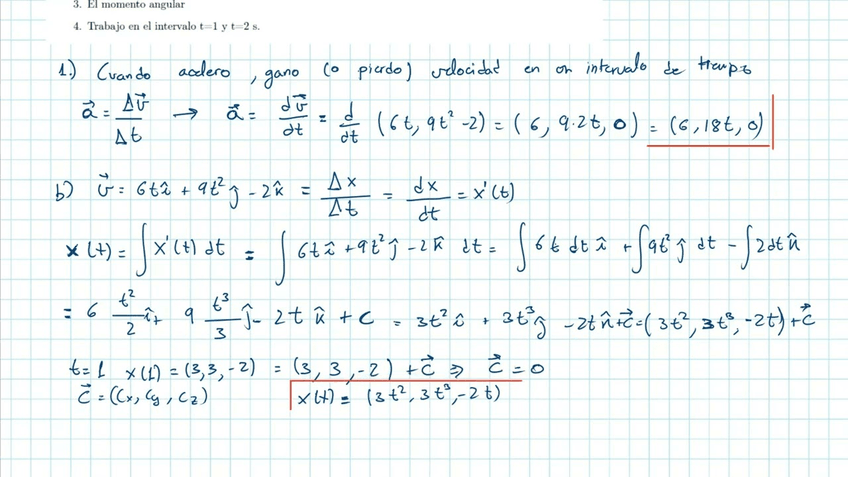 3. El momento angular
4. Trabajo en el intervalo t=1 y t=2 s.
1.) Cuando acelero, gano (o pierdo) velocidad en un intervalo de tiempo
a⃗ = Δv⃗/Δt → a⃗ = dv⃗/dt = d/dt (6t, 9t² -2) = (6, 9·2t, 0) = (6, 18t, 0)
b) v⃗ = 6t î + 9t² ĵ - 2 k̂ = Δx/Δt = dx/dt = x'(t)
x(t) = ∫x'(t) dt = ∫ 6t î + 9t² ĵ - 2 k̂ dt = ∫6t dt î + ∫9t² ĵ dt - ∫2dt k̂
= 6 t²/2 î + 9 t³/3 ĵ - 2t k̂ + C = 3t² î + 3t³ ĵ - 2t k̂ + c⃗ = (3t², 3t³, -2t) + c⃗
t=1 x(1) = (3,3,-2) = (3, 3, -2) + c⃗ ⇒ c⃗ = 0
c⃗ = (Cx, Cy, Cz) x(t) = (3t², 3t³, -2t)